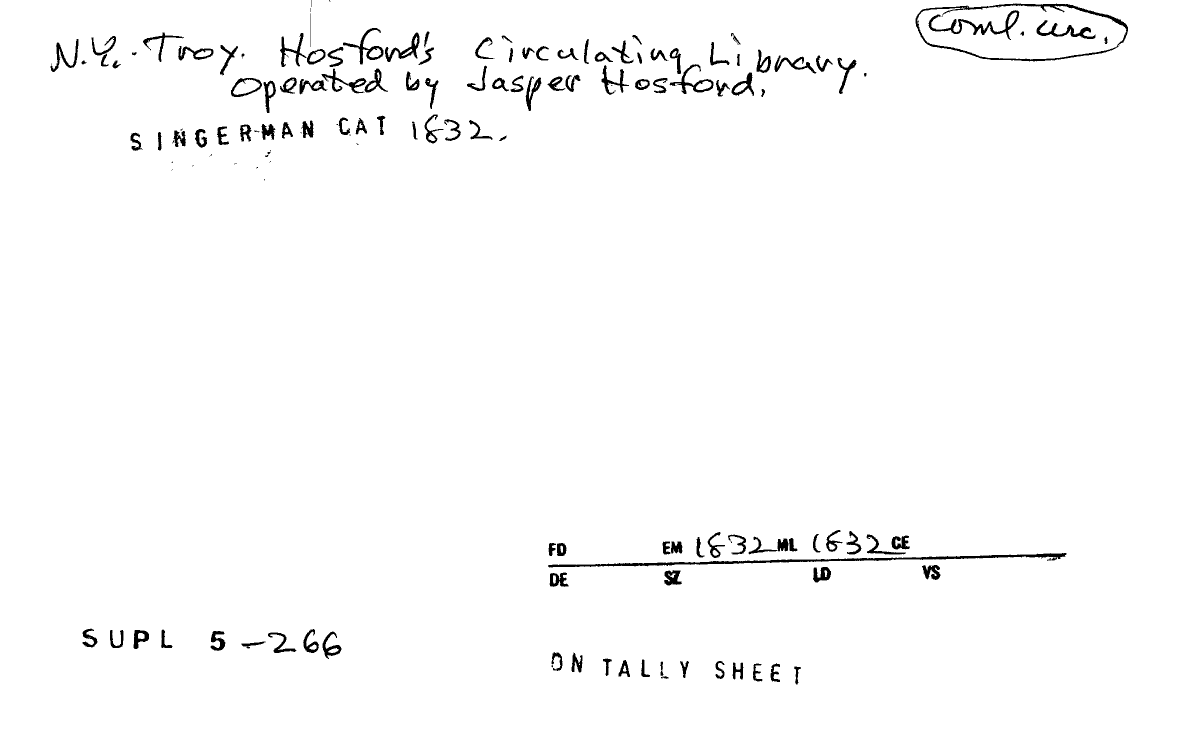 coml. circ.
N.Y. Troy. Hosford's Circulating Library.
Operated by Jasper Hosford.
SINGERMAN CAT 1832.
FD EM 1832 ML 1832 CE
DE SZ LD VS
SUPL 5-266
ON TALLY SHEET